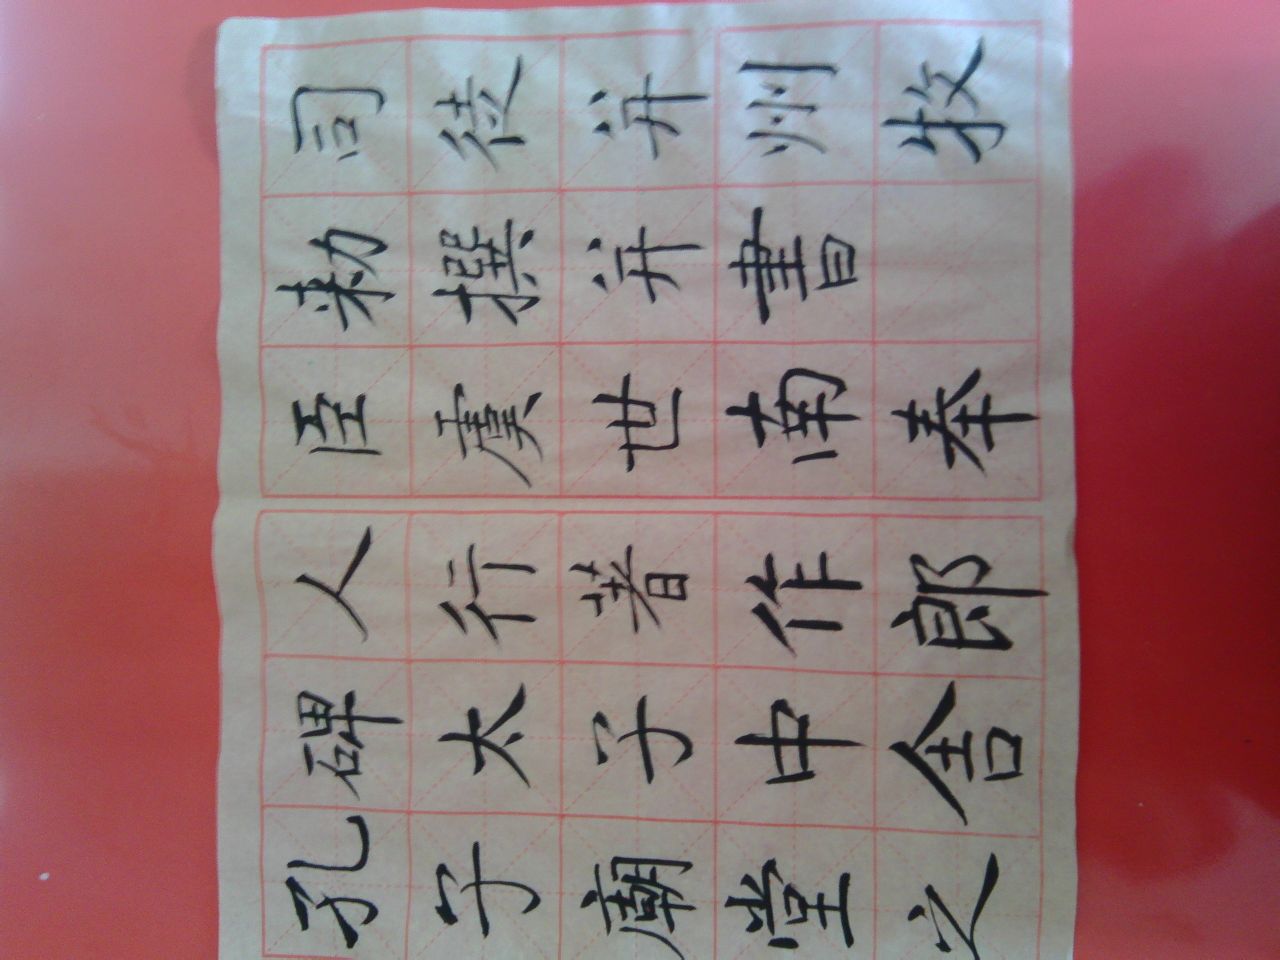 孔子廟堂之
碑太子中舍
人行著作郎
臣虞世南奉
勅撰并書
司徒并州牧